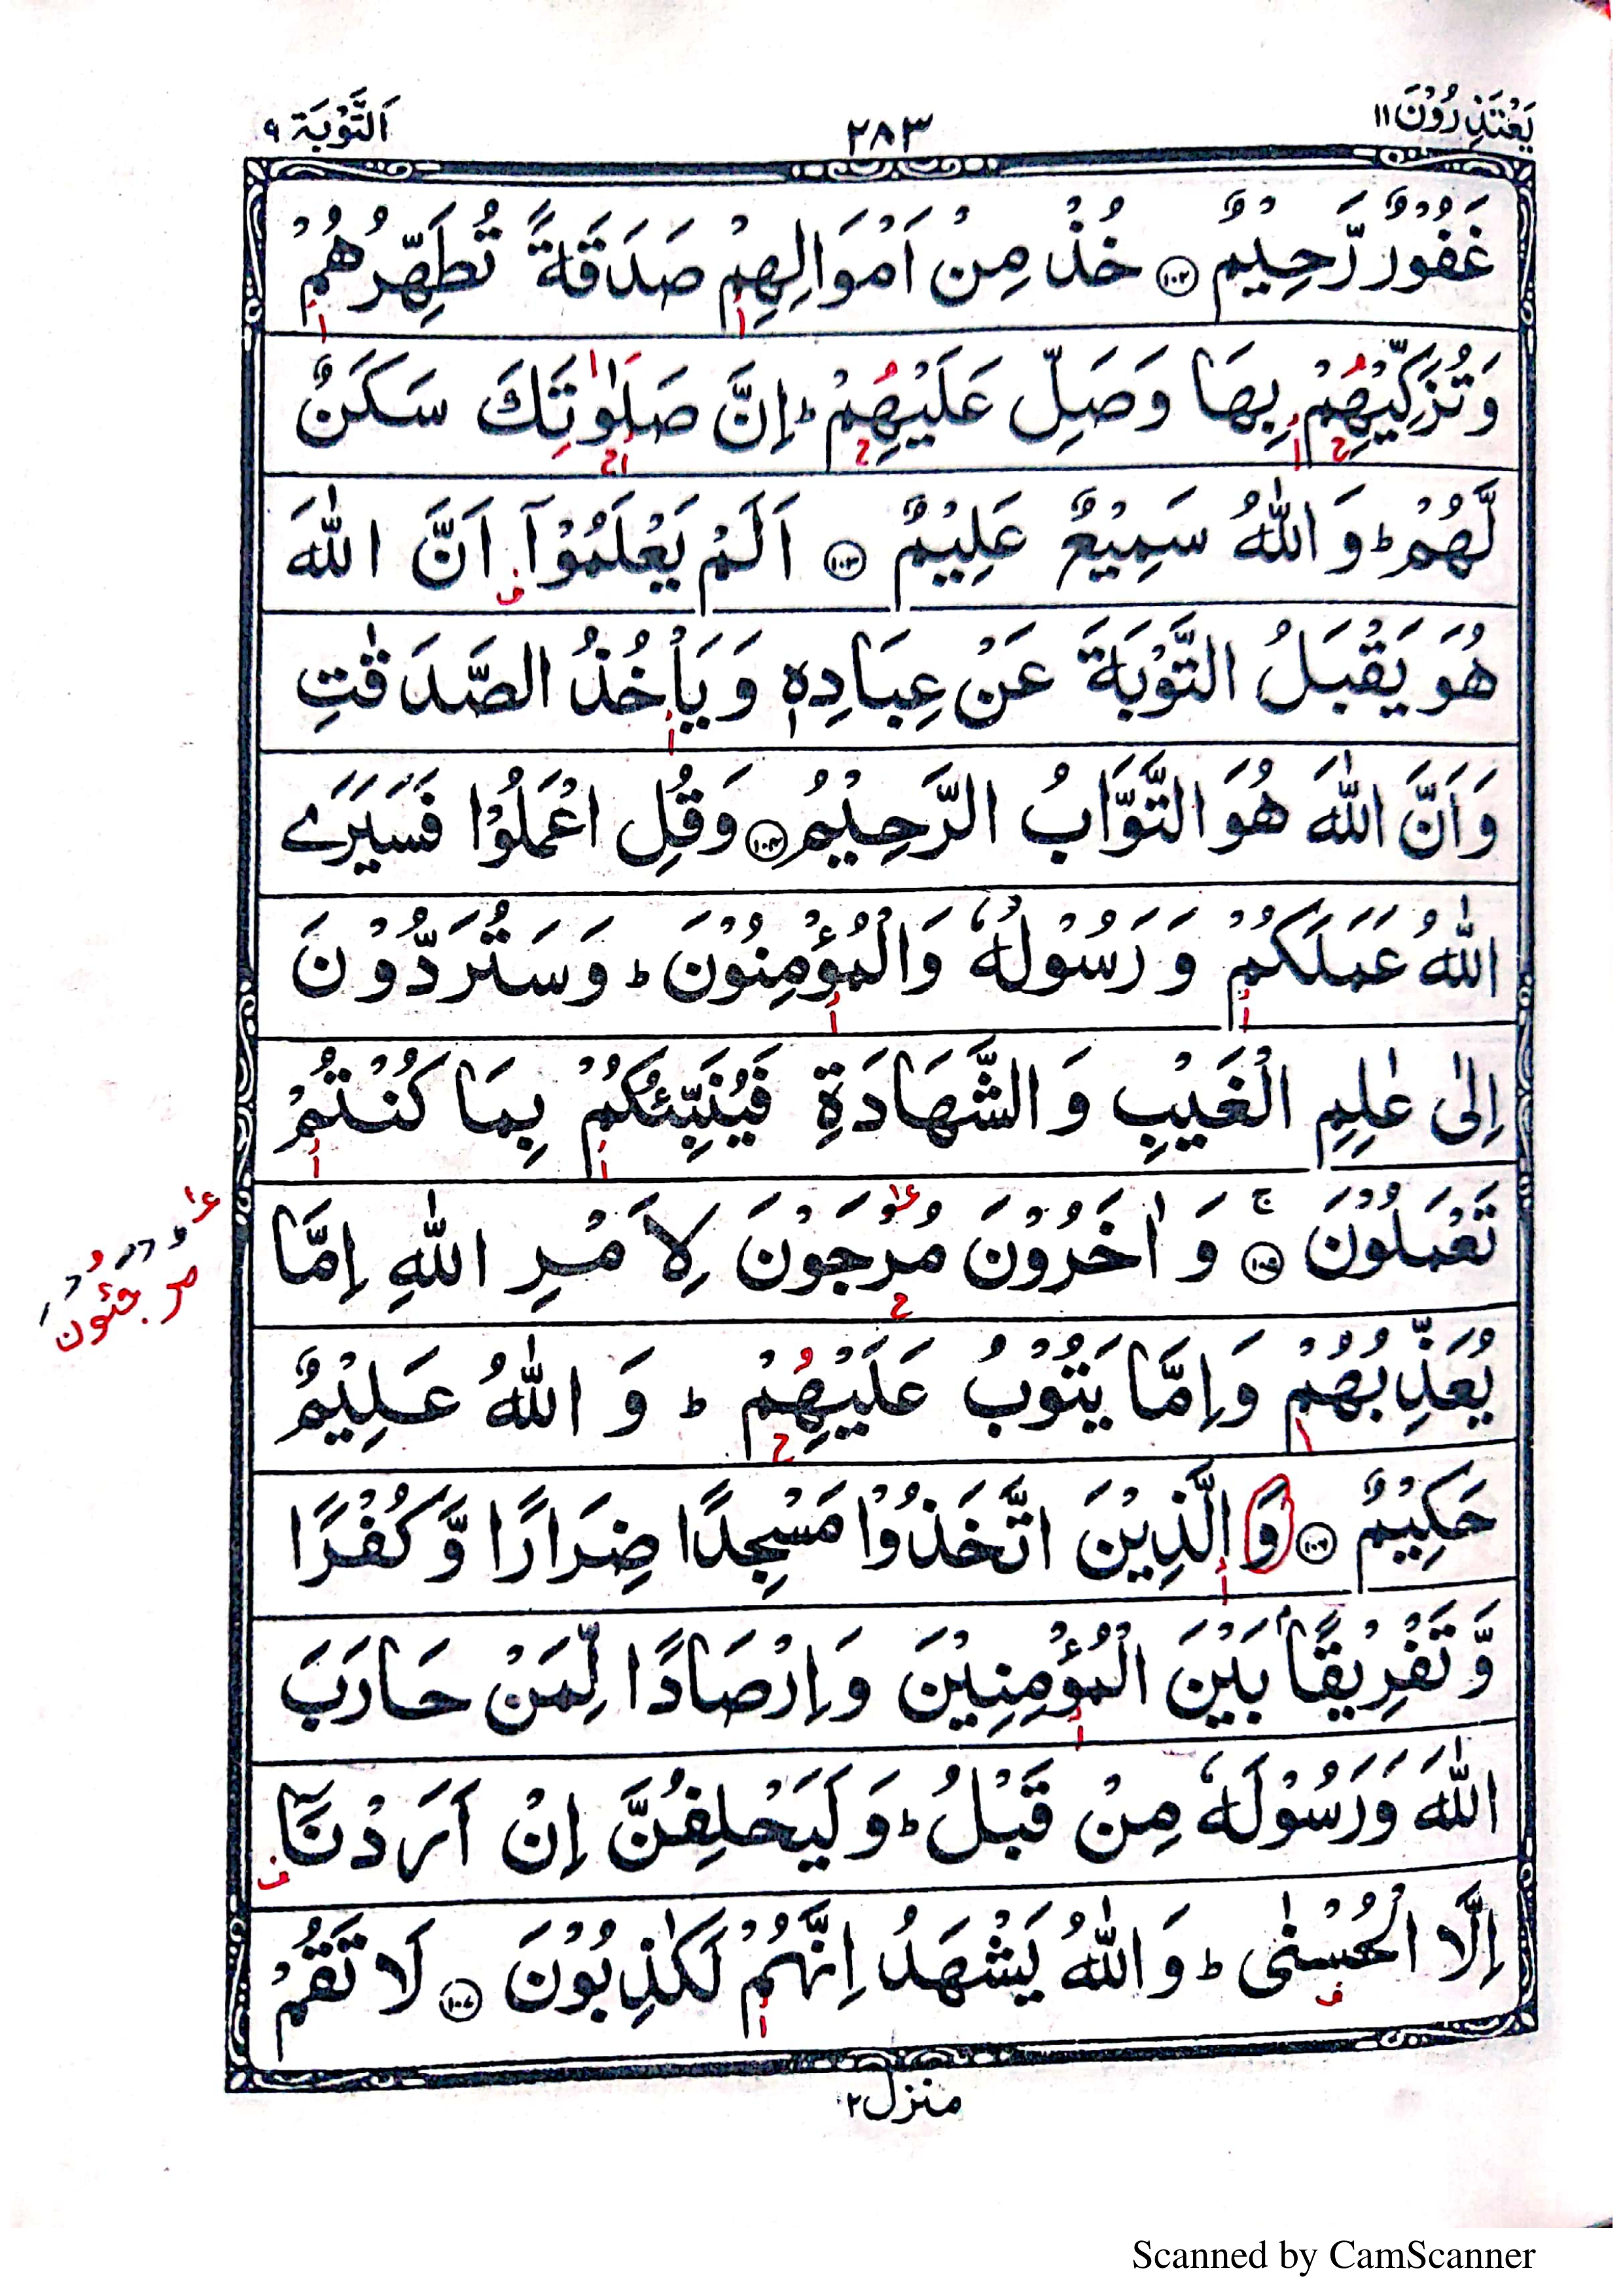 يَعْتَذِرُوْنَ ١١
٢٨٣
اَلتَّوْبَة ٩
غَفُوْرٌ رَّحِيْمٌ ١٠٢ خُذْ مِنْ اَمْوَالِهِمْ صَدَقَةً تُطَهِّرُهُمْ
وَتُزَكِّيْهِمْ بِهَا وَصَلِّ عَلَيْهِمْ ؕ اِنَّ صَلٰوتَكَ سَكَنٌ
لَّهُمْ ؕ وَ اللّٰهُ سَمِيْعٌ عَلِيْمٌ ١٠٣ اَلَمْ يَعْلَمُوْۤا اَنَّ اللّٰهَ
هُوَ يَقْبَلُ التَّوْبَةَ عَنْ عِبَادِهٖ وَ يَاْخُذُ الصَّدَقٰتِ
وَ اَنَّ اللّٰهَ هُوَ التَّوَّابُ الرَّحِيْمُ ١٠٤ وَ قُلِ اعْمَلُوْا فَسَيَرَے
اللّٰهُ عَمَلَكُمْ وَ رَسُوْلُهٗ وَالْمُؤْمِنُوْنَ ؕ وَ سَتُرَدُّوْنَ
اِلٰى عٰلِمِ الْغَيْبِ وَ الشَّهَادَةِ فَيُنَبِّئُكُمْ بِمَا كُنْتُمْ
تَعْمَلُوْنَ ۚ ١٠٥ وَ اٰخَرُوْنَ مُرْجَوْنَ لِاَمْرِ اللّٰهِ اِمَّا
مرجئون
يُعَذِّبُهُمْ وَاِمَّا يَتُوْبُ عَلَيْهِمْ ؕ وَ اللّٰهُ عَلِيْمٌ
حَكِيْمٌ ١٠٦ وَ الَّذِيْنَ اتَّخَذُوْا مَسْجِدًا ضِرَارًا وَّ كُفْرًا
وَّ تَفْرِيْقًۢا بَيْنَ الْمُؤْمِنِيْنَ وَ اِرْصَادًا لِّمَنْ حَارَبَ
اللّٰهَ وَ رَسُوْلَهٗ مِنْ قَبْلُ ؕ وَ لَيَحْلِفُنَّ اِنْ اَرَدْنَاۤ
اِلَّا الْحُسْنٰى ؕ وَ اللّٰهُ يَشْهَدُ اِنَّهُمْ لَكٰذِبُوْنَ ١٠٧ لَا تَقُمْ
منزل ٢
Scanned by CamScanner